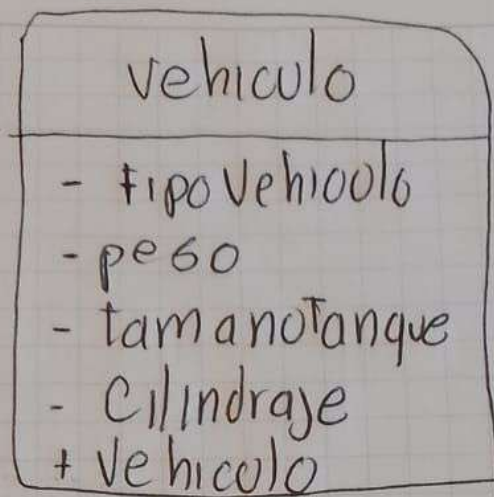 vehiculo
- tipoVehiculo
- peso
- tamanoTanque
- Cilindraje
+ Vehiculo